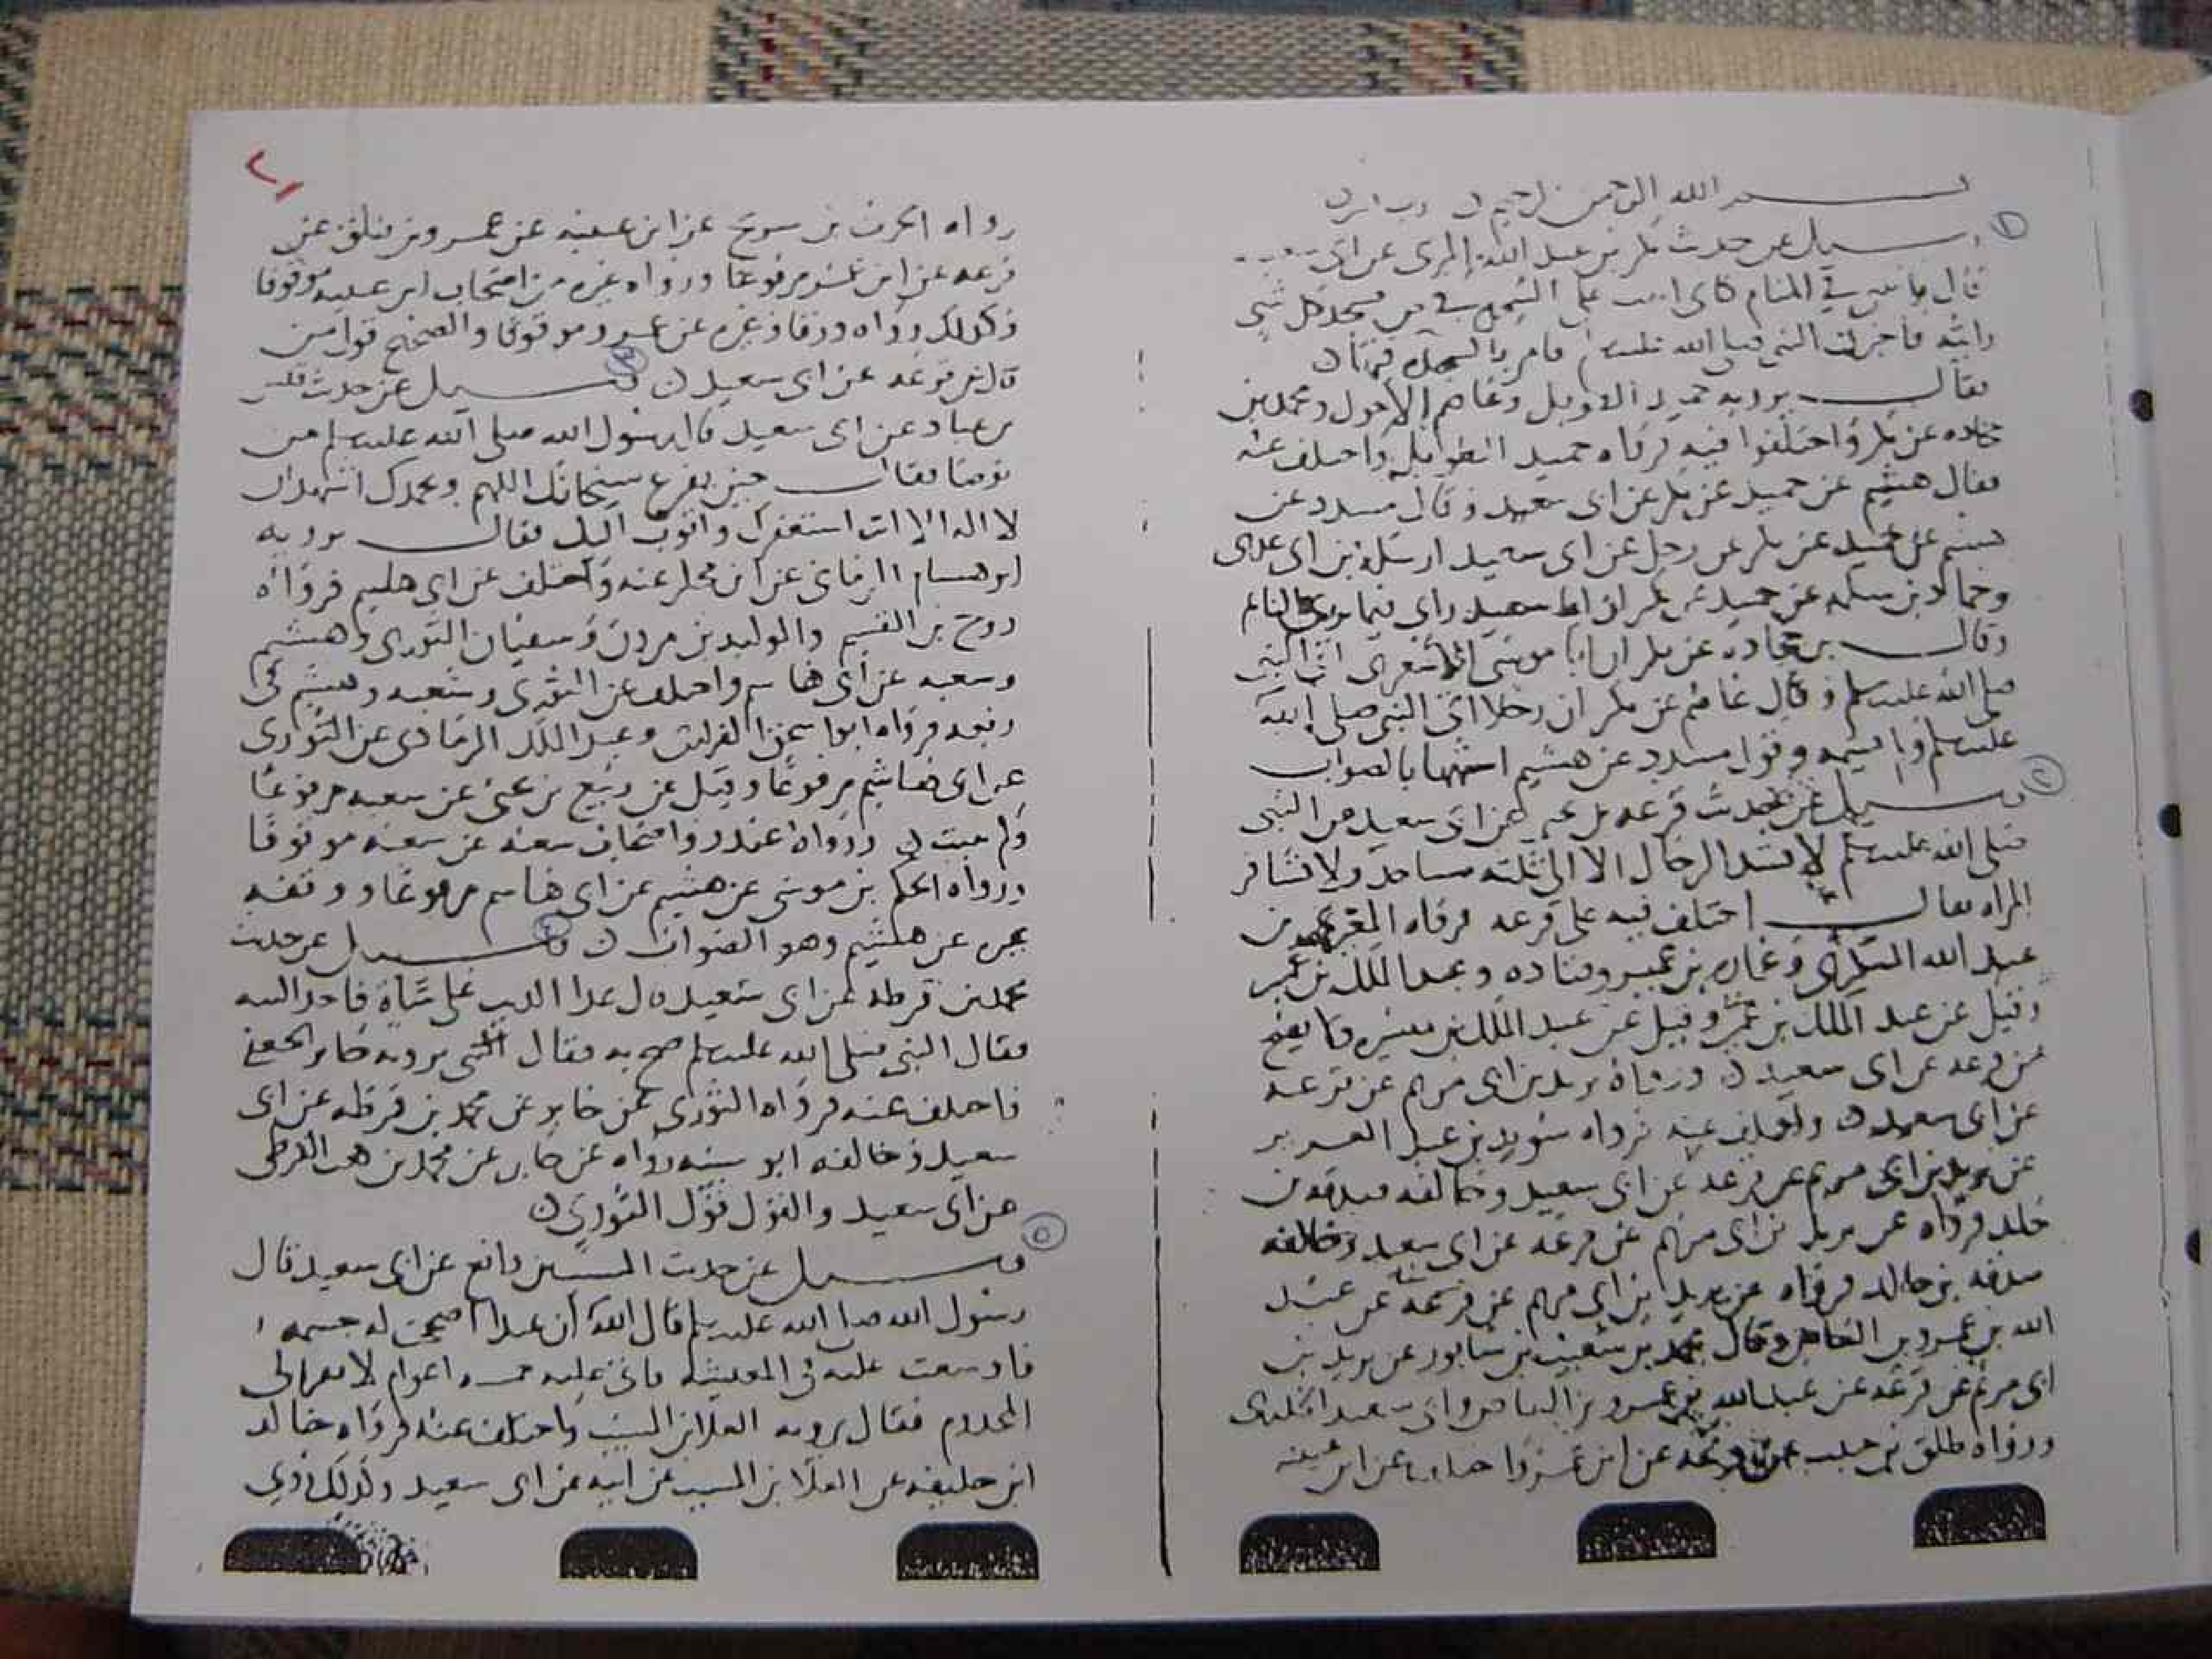 بسم الله الرحمن الرحيم رب
١
وسئل عن حديث بكر بن عبد الله المزني عن ابي سعيد
قال رايتني في المنام كاني على الشجرة في ص فسجد كل شي
رايته فاخبرت النبي صلى الله عليه سلم فامر بالسجدة فيها ن
فقال يرويه حميد الطويل وعاصم الاحول ومحمد بن
جحاده عن بكر واختلفوا فيه فرواه حميد الطويل واختلف عنه
فقال هشيم عن حميد عن بكر عن ابي سعيد وقال مسدد عن
هشيم عن حميد عن بكر عن رجل عن ابي سعيد ارسله ابن ابي عدي
وحماد بن سلمه عن حميد عن بكر ان ابا سعيد راى فيما يرى النائم
وقال بن جحاده عن بكر ان ابا موسى الاشعري اتى النبي
صلى الله عليه سلم وقال عاصم عن بكر ان رجلا اتى النبي صلى الله
عليه سلم وقول مسدد عن هشيم اشبهها بالصواب
٢
وسئل عن حديث قزعه بن يحيى عن ابي سعيد عن النبي
صلى الله عليه سلم لا تشد الرحال الا الى ثلثه مساجد ولا تسافر
المراه فقال اختلف فيه على قزعه فرواه المغيرة بن
عبد الله اليشكري وعمار بن عمير وقتاده وعبد الملك بن عمير
وقيل عن عبد الملك بن عمير وقيل عن عبد الملك بن ميسره ولا يصح
عن قزعه عن ابي سعيد ن ورواه يزيد بن ابي مريم عن قزعه
عن ابي سعيد ن واختلف عنه فرواه سويد بن عبد العزيز
عن يزيد بن ابي مريم عن قزعه عن ابي سعيد وخالفه صدقه بن
خلد فرواه عن يزيد بن ابي مريم عن قزعه عن ابي سعيد وخالفه
صدقه بن خالد فرواه عن يزيد بن ابي مريم عن قزعه عن عبد
الله بن عمرو بن العاص وقال محمد بن شعيب بن شابور عن يزيد بن
ابي مريم عن قزعه عن عبد الله بن عمرو بن العاص وابي سعيد الخدري
ورواه طلق بن حبيب عن قزعه عن ابن عمر واختلف عن ابن عيينه
٢
رواه الحرث بن سريج عن ابن عيينه عن عمرو عن طلق عن
قزعه عن ابن عمر مرفوعا ورواه غيره من اصحاب ابن عيينه موقوفا
وكذلك رواه ورقا وغيره عن عمرو موقوفا والصحيح قول من
قال عن قزعه عن ابي سعيد ن ٣ وسئل عن حديث قيس
بن عباد عن ابي سعيد قال رسول الله صلى الله عليه سلم من
توضا فقال حين يفرغ سبحانك اللهم وبحمدك اشهد ان
لا اله الا انت استغفرك واتوب اليك فقال يرويه
ابو هشام الرماني عن ابن مجلز عنه واختلف عن ابي هشيم فرواه
روح بن القسم والوليد بن مروان وسفيان الثوري وهشيم
وشعبه عن ابي هاشم واختلف عن الثوري وشعبه وهشيم في
رفعه فرواه ابو اسحق الفزاري وعبد الملك الذماري عن الثوري
عن ابي هاشم مرفوعا وقيل عن ربيع بن يحيى عن شعبه مرفوعا
ولم يثبت ن ورواه غندر واصحاب شعبه عن شعبه موقوفا
ورواه الحكم بن موسى عن هشيم عن ابي هاشم مرفوعا ووقفه
غيره عن هشيم وهو الصواب ن ٤ وسئل عن حديث
محمد بن قرظه عن ابي سعيد قال عدا الذيب على شاة فاخذ اليته
فقال النبي صلى الله عليه سلم ضح به فقال الشيخ يرويه جابر الجعفي
فاختلف عنه فرواه الثوري عن جابر عن محمد بن قرظه عن ابي
سعيد وخالفه ابو شيبه رواه عن جابر عن محمد بن كعب القرظي
عن ابي سعيد والقول قول الثوري ن
٥
وسئل عن حديث المسيب بن رافع عن ابي سعيد قال
رسول الله صلى الله عليه سلم قال الله ان عبدا اصححت له جسمه
فاوسعت عليه في المعيشه فاتى عليه خمسه اعوام لا يفد الي
المحروم فقال يرويه العلا بن المسيب واختلف عنه فرواه خالد
ابن خليفه عن العلا بن المسيب عن ابيه عن ابي سعيد وكذلك روي